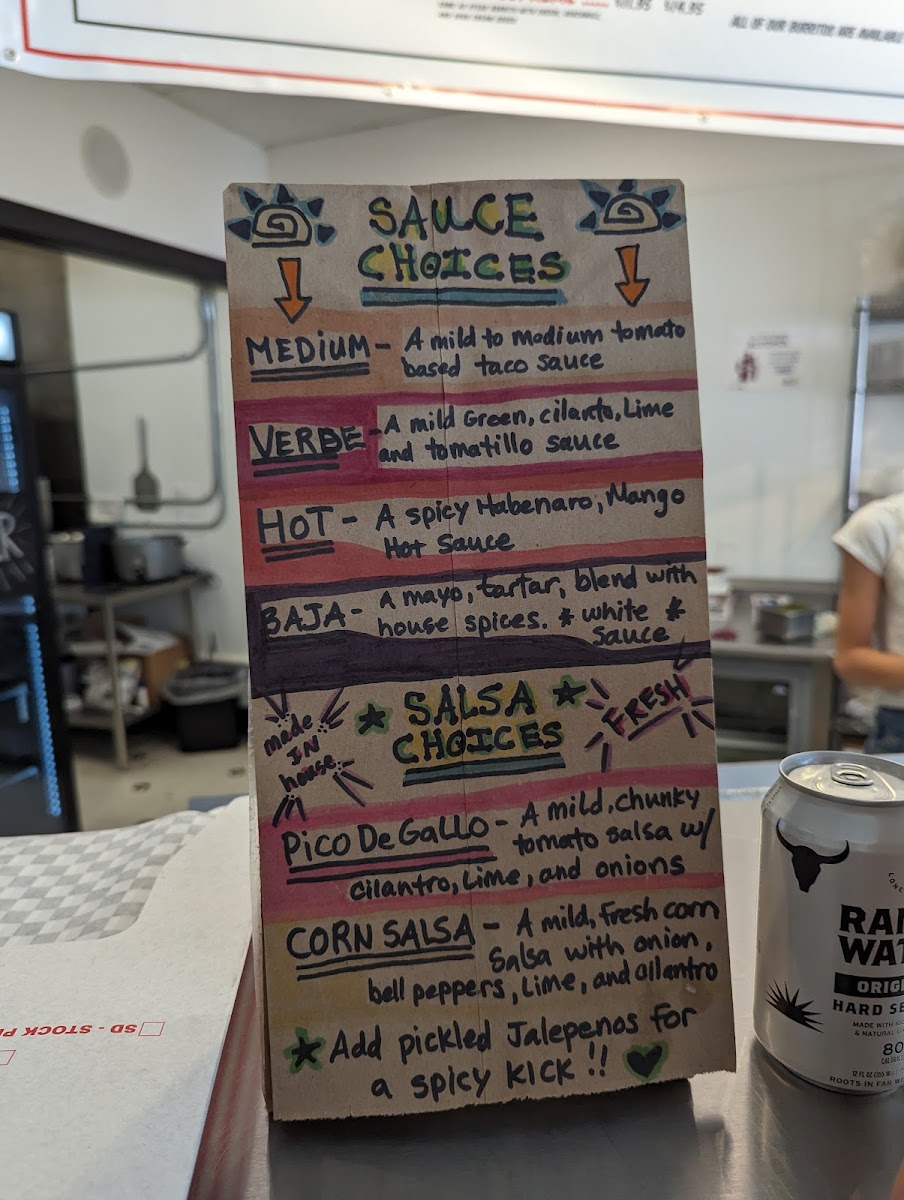 ALL OF OUR BURRITOS ARE AVAILABLE
SAUCE
CHOICES
MEDIUM - A mild to medium tomato
based taco sauce
VERBE - A mild Green, cilanto, Lime
and tomatillo sauce
HOT - A spicy Habenaro, Mango
Hot Sauce
BAJA - A mayo, tartar, blend with
house spices. * white *
sauce
SALSA
CHOICES
made
IN
house
FRESH
PICO De GALLO - A mild, chunky
tomato salsa w/
cilantro, Lime, and onions
CORN SALSA - A mild, fresh corn
Salsa with onion,
bell peppers, Lime, and cilantro
Add pickled Jalepenos for
a spicy KICK !!
SD - STOCK
RAN
WAT
ORIG
HARD SE
MADE WITH
& NATURAL
80
12 FL OZ (355 ML)
ROOTS IN FAR WE